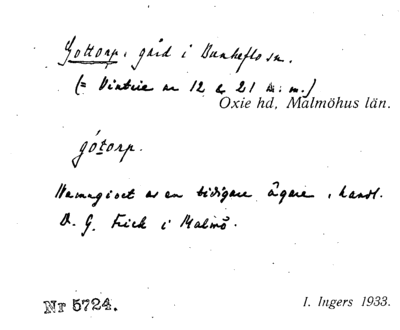 Gottorp, gård i Bunkeflo sn.
(= Vintrie nr 12 & 21 m. m.)
Oxie hd, Malmöhus län.
gótorp.
Namngivet av en tidigare ägare, handl.
D. G. Frick i Malmö.
Nr 5724.
I. Ingers 1933.